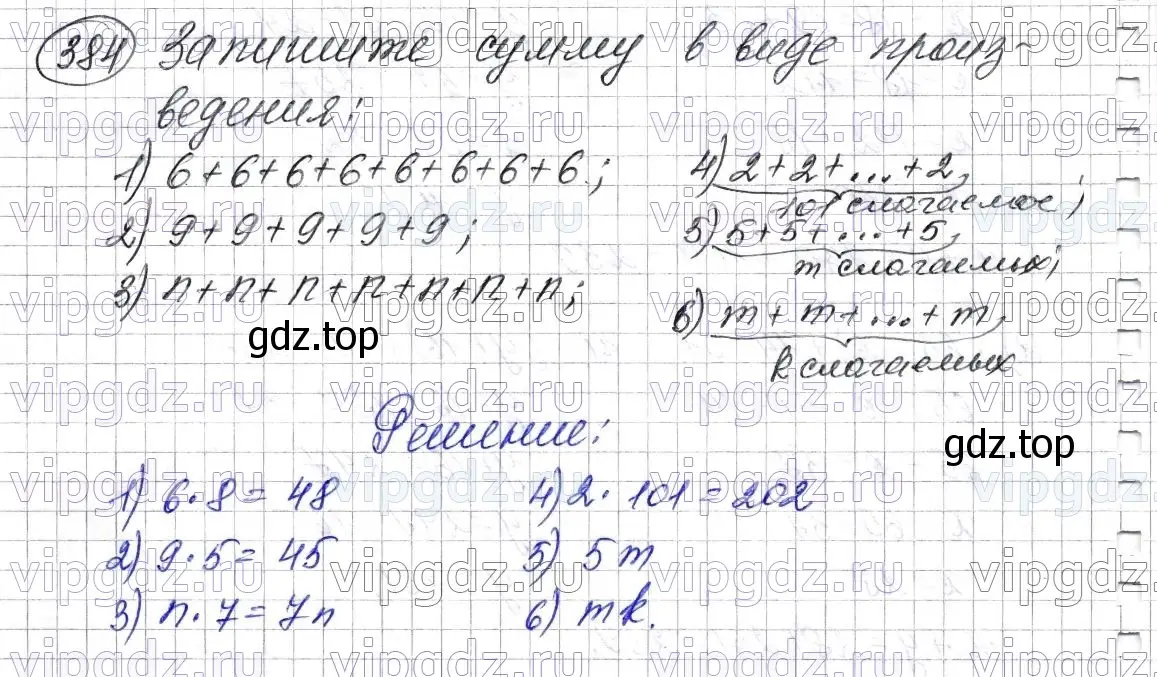 384 Запишите сумму в виде произ-
ведения:
1) 6+6+6+6+6+6+6+6;
2) 9+9+9+9+9;
3) n+n+n+n+n+n+n;
4) 2+2+...+2,
101 слагаемое;
5) 5+5+...+5,
m слагаемых;
6) m+m+...+m,
k слагаемых
gdz.top
Решение:
gdz.top
1) 6·8=48
2) 9·5=45
3) n·7=7n
4) 2·101=202
5) 5m
6) mk.
vipgdz.ru